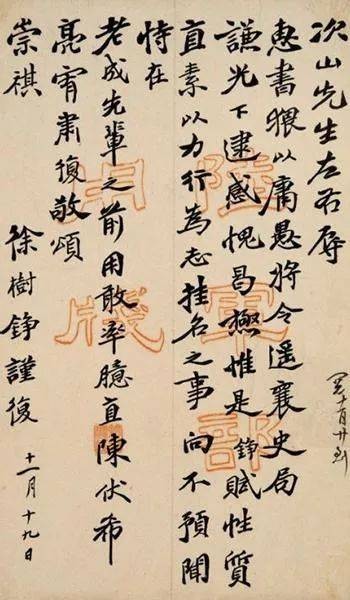 次山先生左右辱
惠書猥以庸愚將令遥襄史局
謙光下逮感愧曷極惟是錚賦性質
直素以力行為志挂名之事向不預聞
恃在
老成先輩之前用敢率臆直陳伏希
亮宥肅復敬頌
崇祺
徐樹錚謹復
十一月十九日
陸軍部
用牋